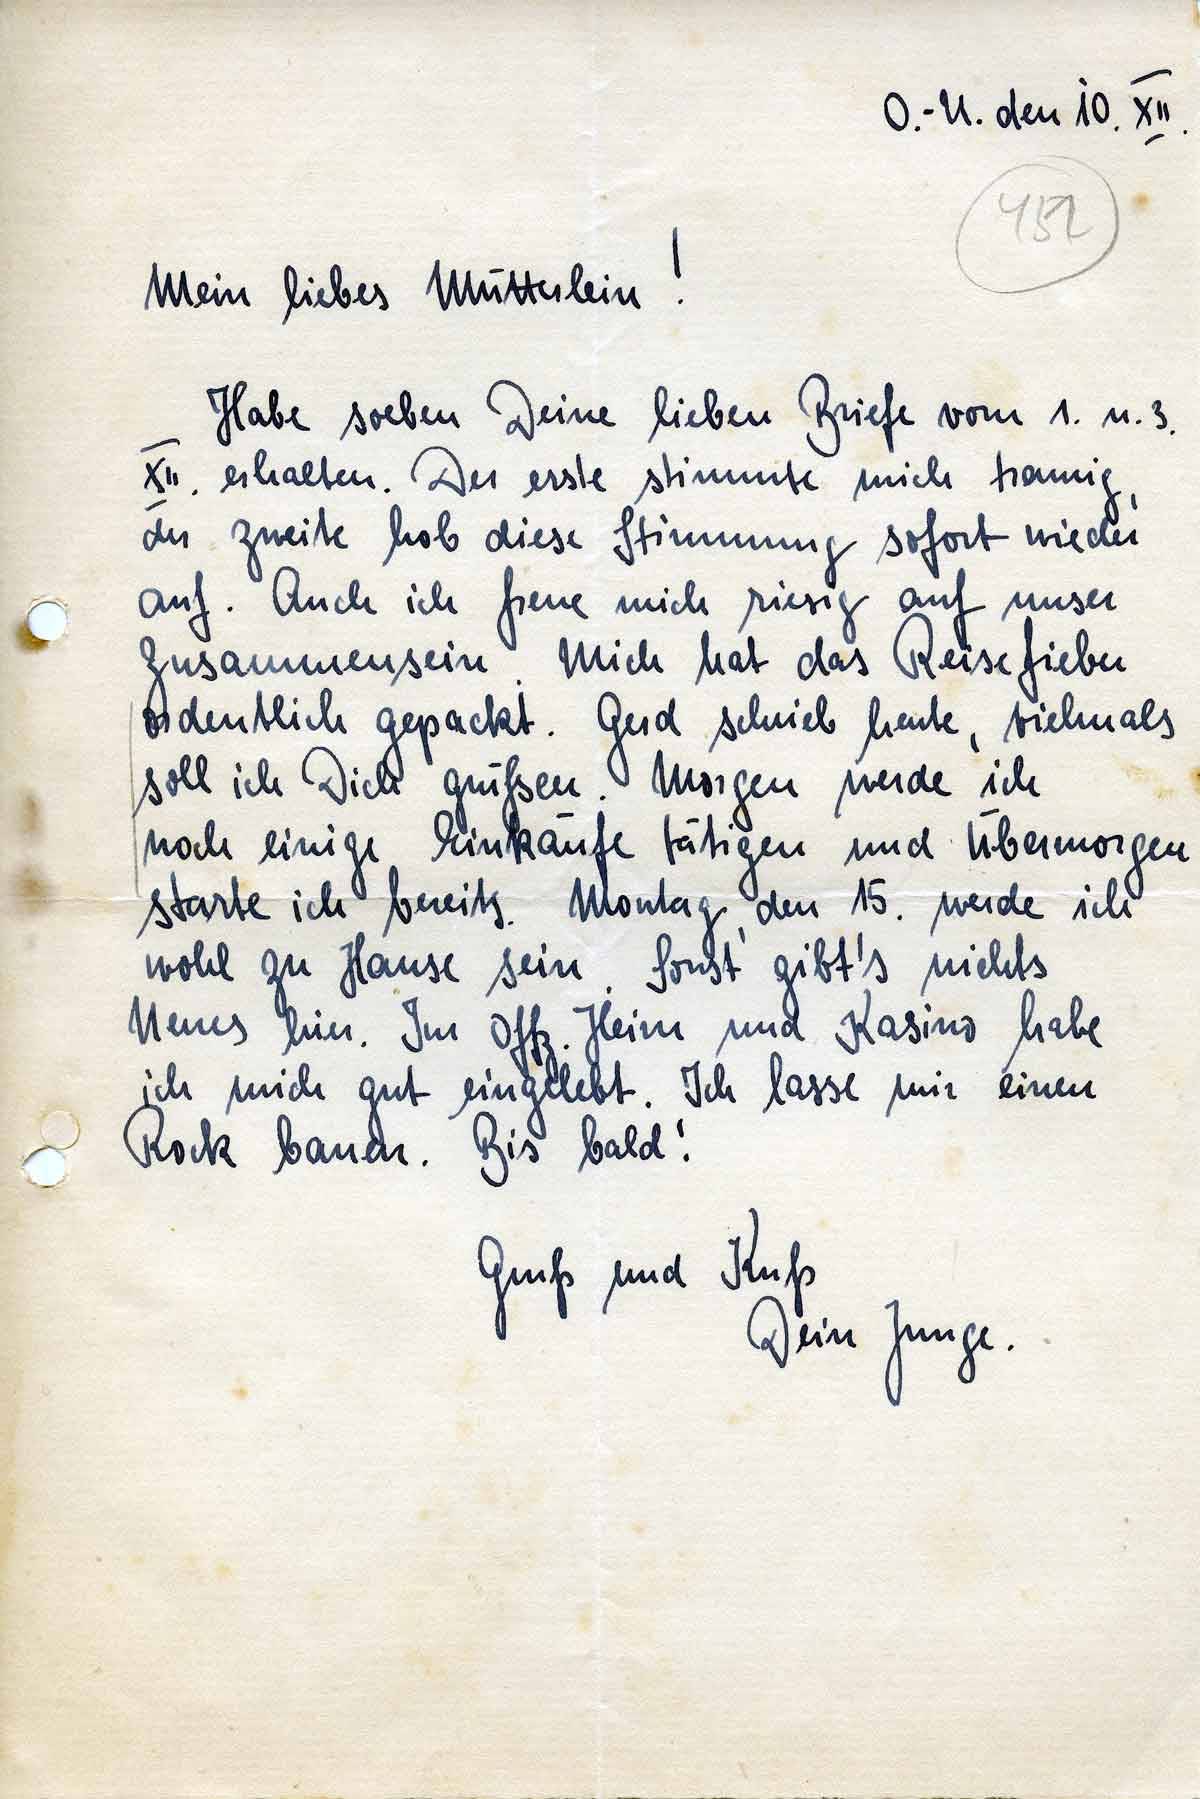 O.-U. den 10. XII.
452
Mein liebes Mütterlein!
Habe soeben Deine lieben Briefe vom 1. u. 3.
XII. erhalten. Der erste stimmte mich traurig,
der zweite hob diese Stimmung sofort wieder
auf. Auch ich freue mich riesig auf unser
Zusammensein. Mich hat das Reisefieber
ordentlich gepackt. Gerd schrieb heute, vielmals
soll ich Dich grüßen. Morgen werde ich
noch einige Einkäufe tätigen und Übermorgen
starte ich bereits. Montag, den 15. werde ich
wohl zu Hause sein. Sonst gibt's nichts
Neues hier. Im Offz. Heim und Kasino habe
ich mich gut eingelebt. Ich lasse mir einen
Rock bauen. Bis bald!
Gruß und Kuß
Dein Junge.